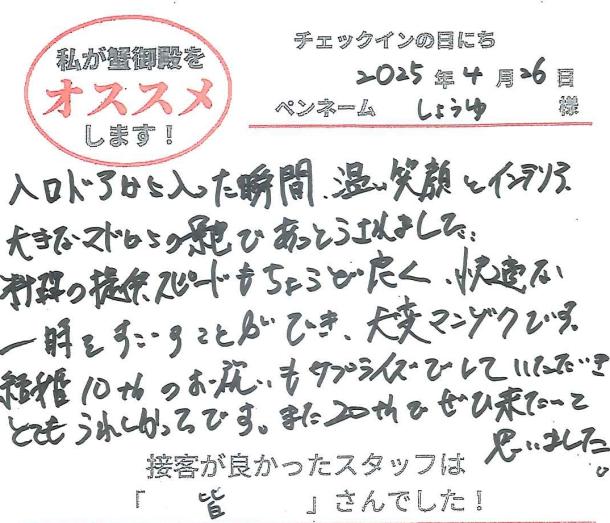 私が蟹御殿を
オススメ
します！
チェックインの日にち
2025年4月26日
ペンネーム しょうゆ 様
入口ドアから入った瞬間、温い笑顔とインテリア、
大きなマドからの景色であっとうされました。
料理の提供スピードもちょうど良く、快適な
一時をすごすことができ、大変マンゾクです。
結婚10thのお祝いもサプライズでしていただき
とてもうれしかったです。また20thでぜひ来たいと
思いました。
接客が良かったスタッフは
「 皆 」さんでした！